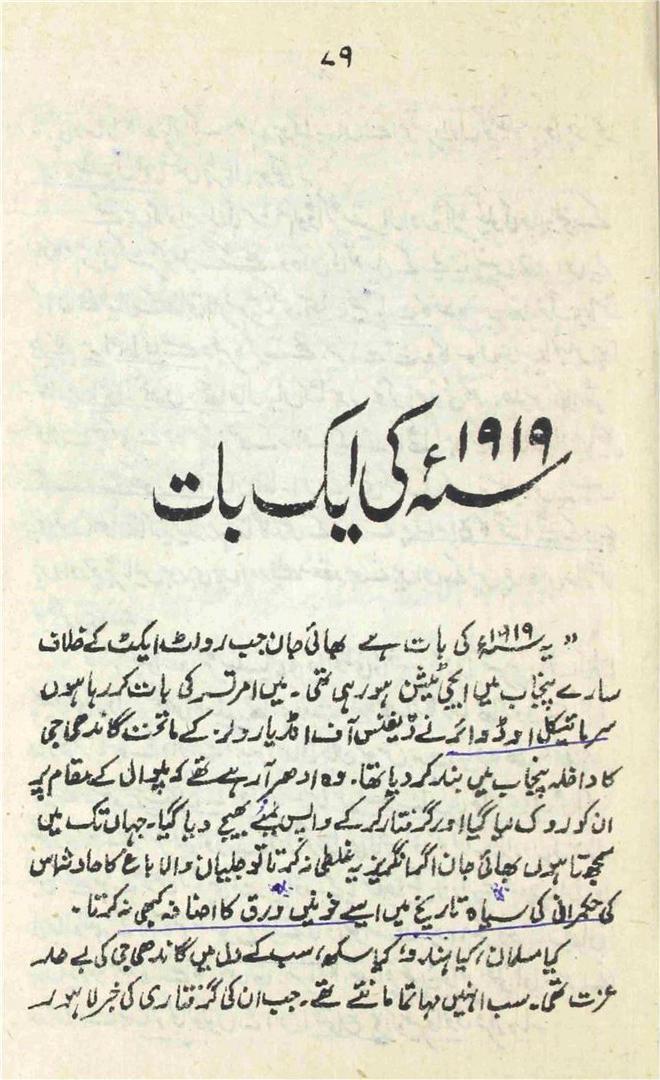 ۷۹
۱۹۱۹ سنہء کی ایک بات
” یہ سنہ ۱۹۱۹ء کی بات ہے بھائی جان جب رولٹ ایکٹ کے خلاف
سارے پنجاب میں ایجی ٹیشن ہو رہی تھی ۔ میں امرتسر کی بات کر رہا ہوں
سر مائیکل اوڈوائر نے ڈیفنس آف انڈیا رولز کے ماتحت گاندھی جی
کا داخلہ پنجاب میں بند کر دیا تھا۔ وہ ادھر آ رہے تھے کہ پلوال کے مقام پر
ان کو روک لیا گیا اور گرفتار کر کے واپس بمبئے بھیج دیا گیا۔ جہاں تک میں
سمجھتا ہوں بھائی جان اگر انگریز یہ غلطی نہ کرتا تو جلیاں والا باغ کا حادثہ اس
کی حکمرانی کی سیاہ تاریخ میں ایسے خونیں ورق کا اضافہ کبھی نہ کرتا ۔
کیا مسلمان، کیا ہندو، کیا سکھ، سب کے دل میں گاندھی جی کی بے حد
عزت تھی۔ سب انہیں مہاتما مانتے تھے۔ جب ان کی گرفتاری کی خبر لاہور